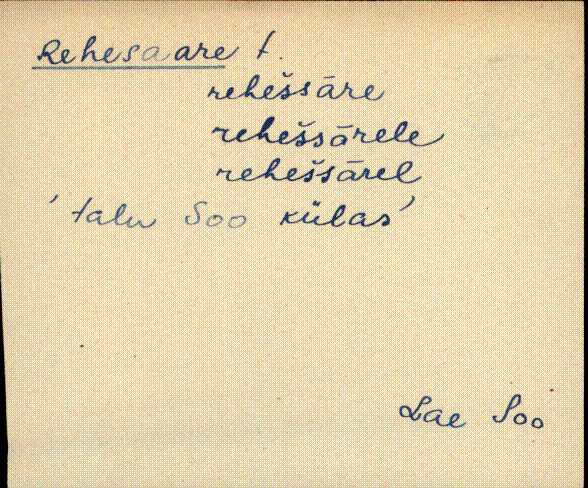 Rehesaare t.
rehešsāre
rehešsārele
rehešsārel
'talu Soo külas'
Lae Soo